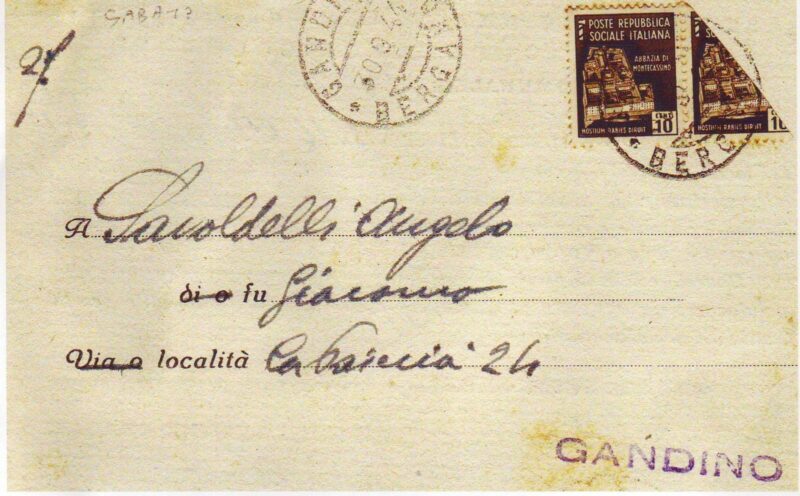 SABATO
2ª
GANDINO
30.9.44
* BERGAMO
POSTE REPUBBLICA
SOCIALE ITALIANA
ABBAZIA DI
MONTECASSINO
CENT 10
HOSTIUM RABIES DIRUIT
HOSTIUM RABIES DIRUIT
10
* BERG
A Savoldelli Angelo
di o fu Giacomo
Via o località 24
GANDINO